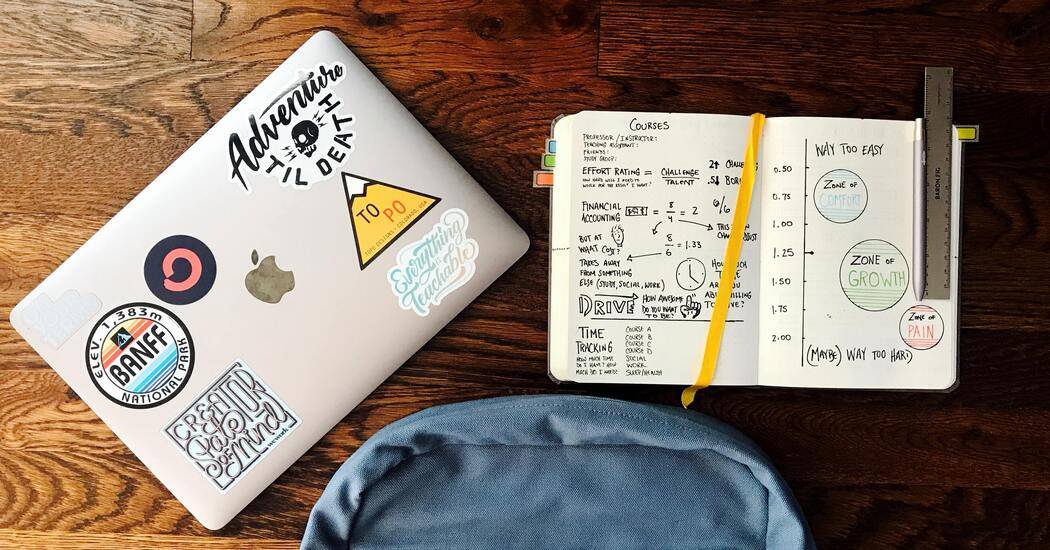 Adventure
TIL DEATH
TO PO
TOPO DESIGNS • COLORADO, USA
Everything
is
Teachable
ELEV. 1,383m
BANFF
NATIONAL PARK
CREATOR
State
of Mind
wework
COURSES
PROFESSOR / INSTRUCTOR:
TEACHING ASSISTANT:
FRIENDS:
STUDY GROUP:
EFFORT RATING = CHALLENGE
TALENT
HOW HARD WILL I NEED TO
WORK FOR THE RESULT I WANT?
2↑
.5↓
FINANCIAL
ACCOUNTING
= 8/4 = 2
6/6
BUT AT
WHAT COST?
8/6 = 1.33
THIS
TAKES AWAY
FROM SOMETHING
ELSE (STUDY, SOCIAL, WORK)
DRIVE
HOW AWESOME
DO YOU WANT
TO BE?
TIME
TRACKING
HOW MUCH TIME
DO I HAVE? HOW
MUCH DO I NEED?
COURSE A
COURSE B
COURSE C
COURSE D
SOCIAL
WORK
SLEEP/HEALTH
WAY TOO EASY
0.50
0.75
1.00
1.25
1.50
1.75
2.00
ZONE OF
COMFORT
ZONE OF
GROWTH
ZONE OF
PAIN
(MAYBE) WAY TOO HARD
BARON FIG